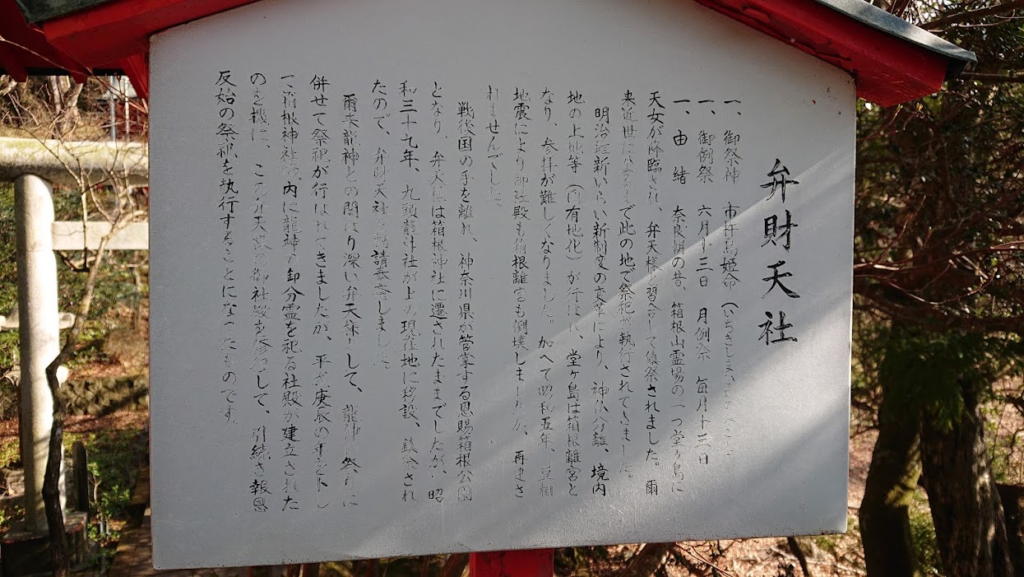 弁財天社
一、御祭神 市杵島姫命
一、御例祭 六月十三日 月例祭 毎月十三日
一、由緒 奈良朝の昔、箱根山霊場の一つ堂ヶ島に
天女が降臨され、弁天様と習合して後祭されました。爾
来近世に まで此の地で祭祀が執行されてきました。
明治維新いらい新制度の変革により、神仏分離、境内
地の上地等（国有地化）が行はれ、堂ヶ島は箱根離宮と
なり、参拝が難しくなりました。加へて昭和五年、豆相
地震により御社殿も箱根離宮も倒壊しましたが、再建さ
れませんでした。
戦後国の手を離れ、神奈川県が管掌する恩賜箱根公園
となり、弁天社は箱根神社に遷されたままでしたが、昭
和三十九年、九頭龍神社が上の現在地に移設、鎮祭され
たので、弁財天社も 請奉斎しました。
爾来龍神との関はり深い弁天様として、龍神の祭りに
併せて祭祀が行はれてきましたが、平成庚辰の
箱根神社境内に龍神の御分霊を祀る社殿が建立された
のを機に、この弁天宮の御社殿を修 して、引続き報恩
反始の祭祀を執行することになったものです。